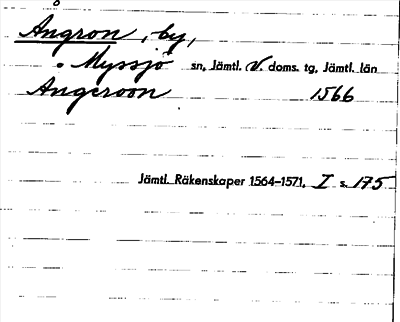 Ångron, by,
Myssjö sn, Jämtl. V. doms. tg, Jämtl. län
Angeroon 1566
Jämtl. Räkenskaper 1564–1571, I s. 175